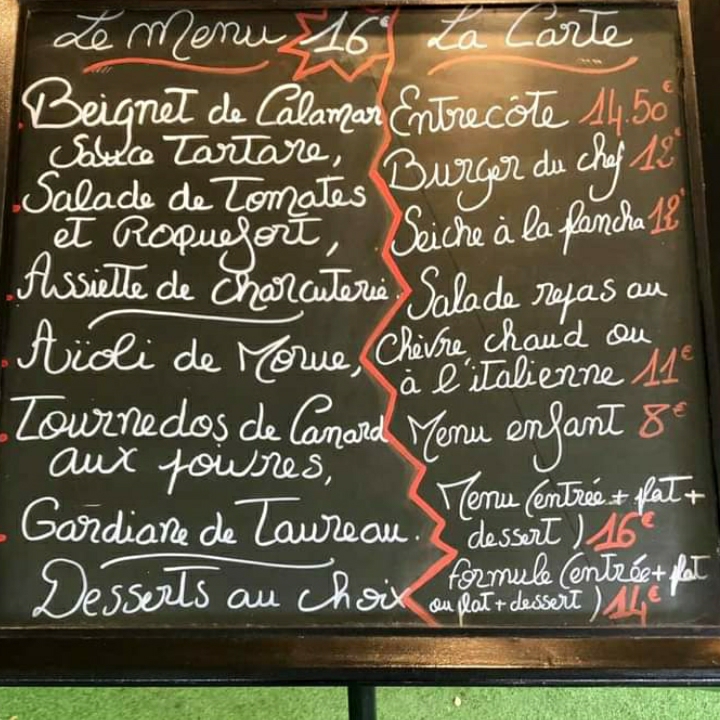 Le Menu 16€
Beignet de Calamar
Sauce Tartare,
Salade de Tomates
et Roquefort,
Assiette de charcuterie.
Aïoli de Morue,
Tournedos de Canard
aux poivres,
Gardiane de Taureau.
Desserts au choix
La Carte
Entrecôte 14.50€
Burger du chef 12€
Seiche à la plancha 12€
Salade repas au
Chèvre chaud ou
à l'italienne 11€
Menu enfant 8€
Menu (entrée + plat +
dessert) 16€
formule (entrée + plat
ou plat + dessert) 14€